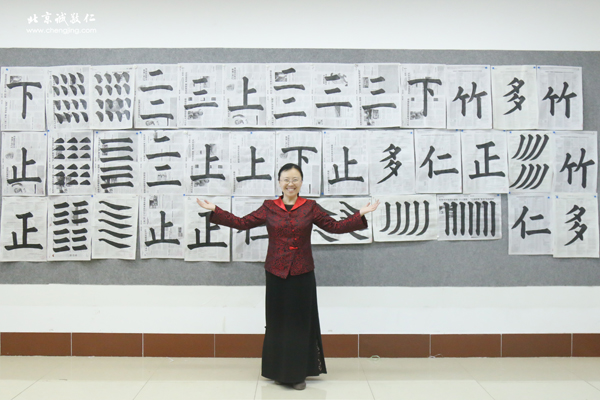 北京诚敬仁
下 二二 三 上 二二 三 三 下 竹 多 竹
止 二二 上 上 下 止 多 仁 正 竹
正 止 正 仁 仁 多